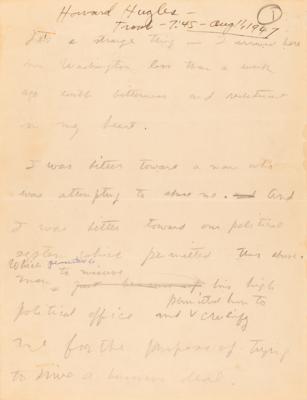 Howard Hughes -
From - 7:45 - Aug 11, 1947
1
It's a strange thing - I arrived here
in Washington less than a week
ago with bitterness and
in my heart.
I was bitter toward a man who
was attempting to abuse me. and And
I was bitter toward our political
system which permitted this abuse.
Which permitted
man to misuse
just because of his high
permitted him to
political office and crucify
me for the purpose of trying
to drive a business deal.